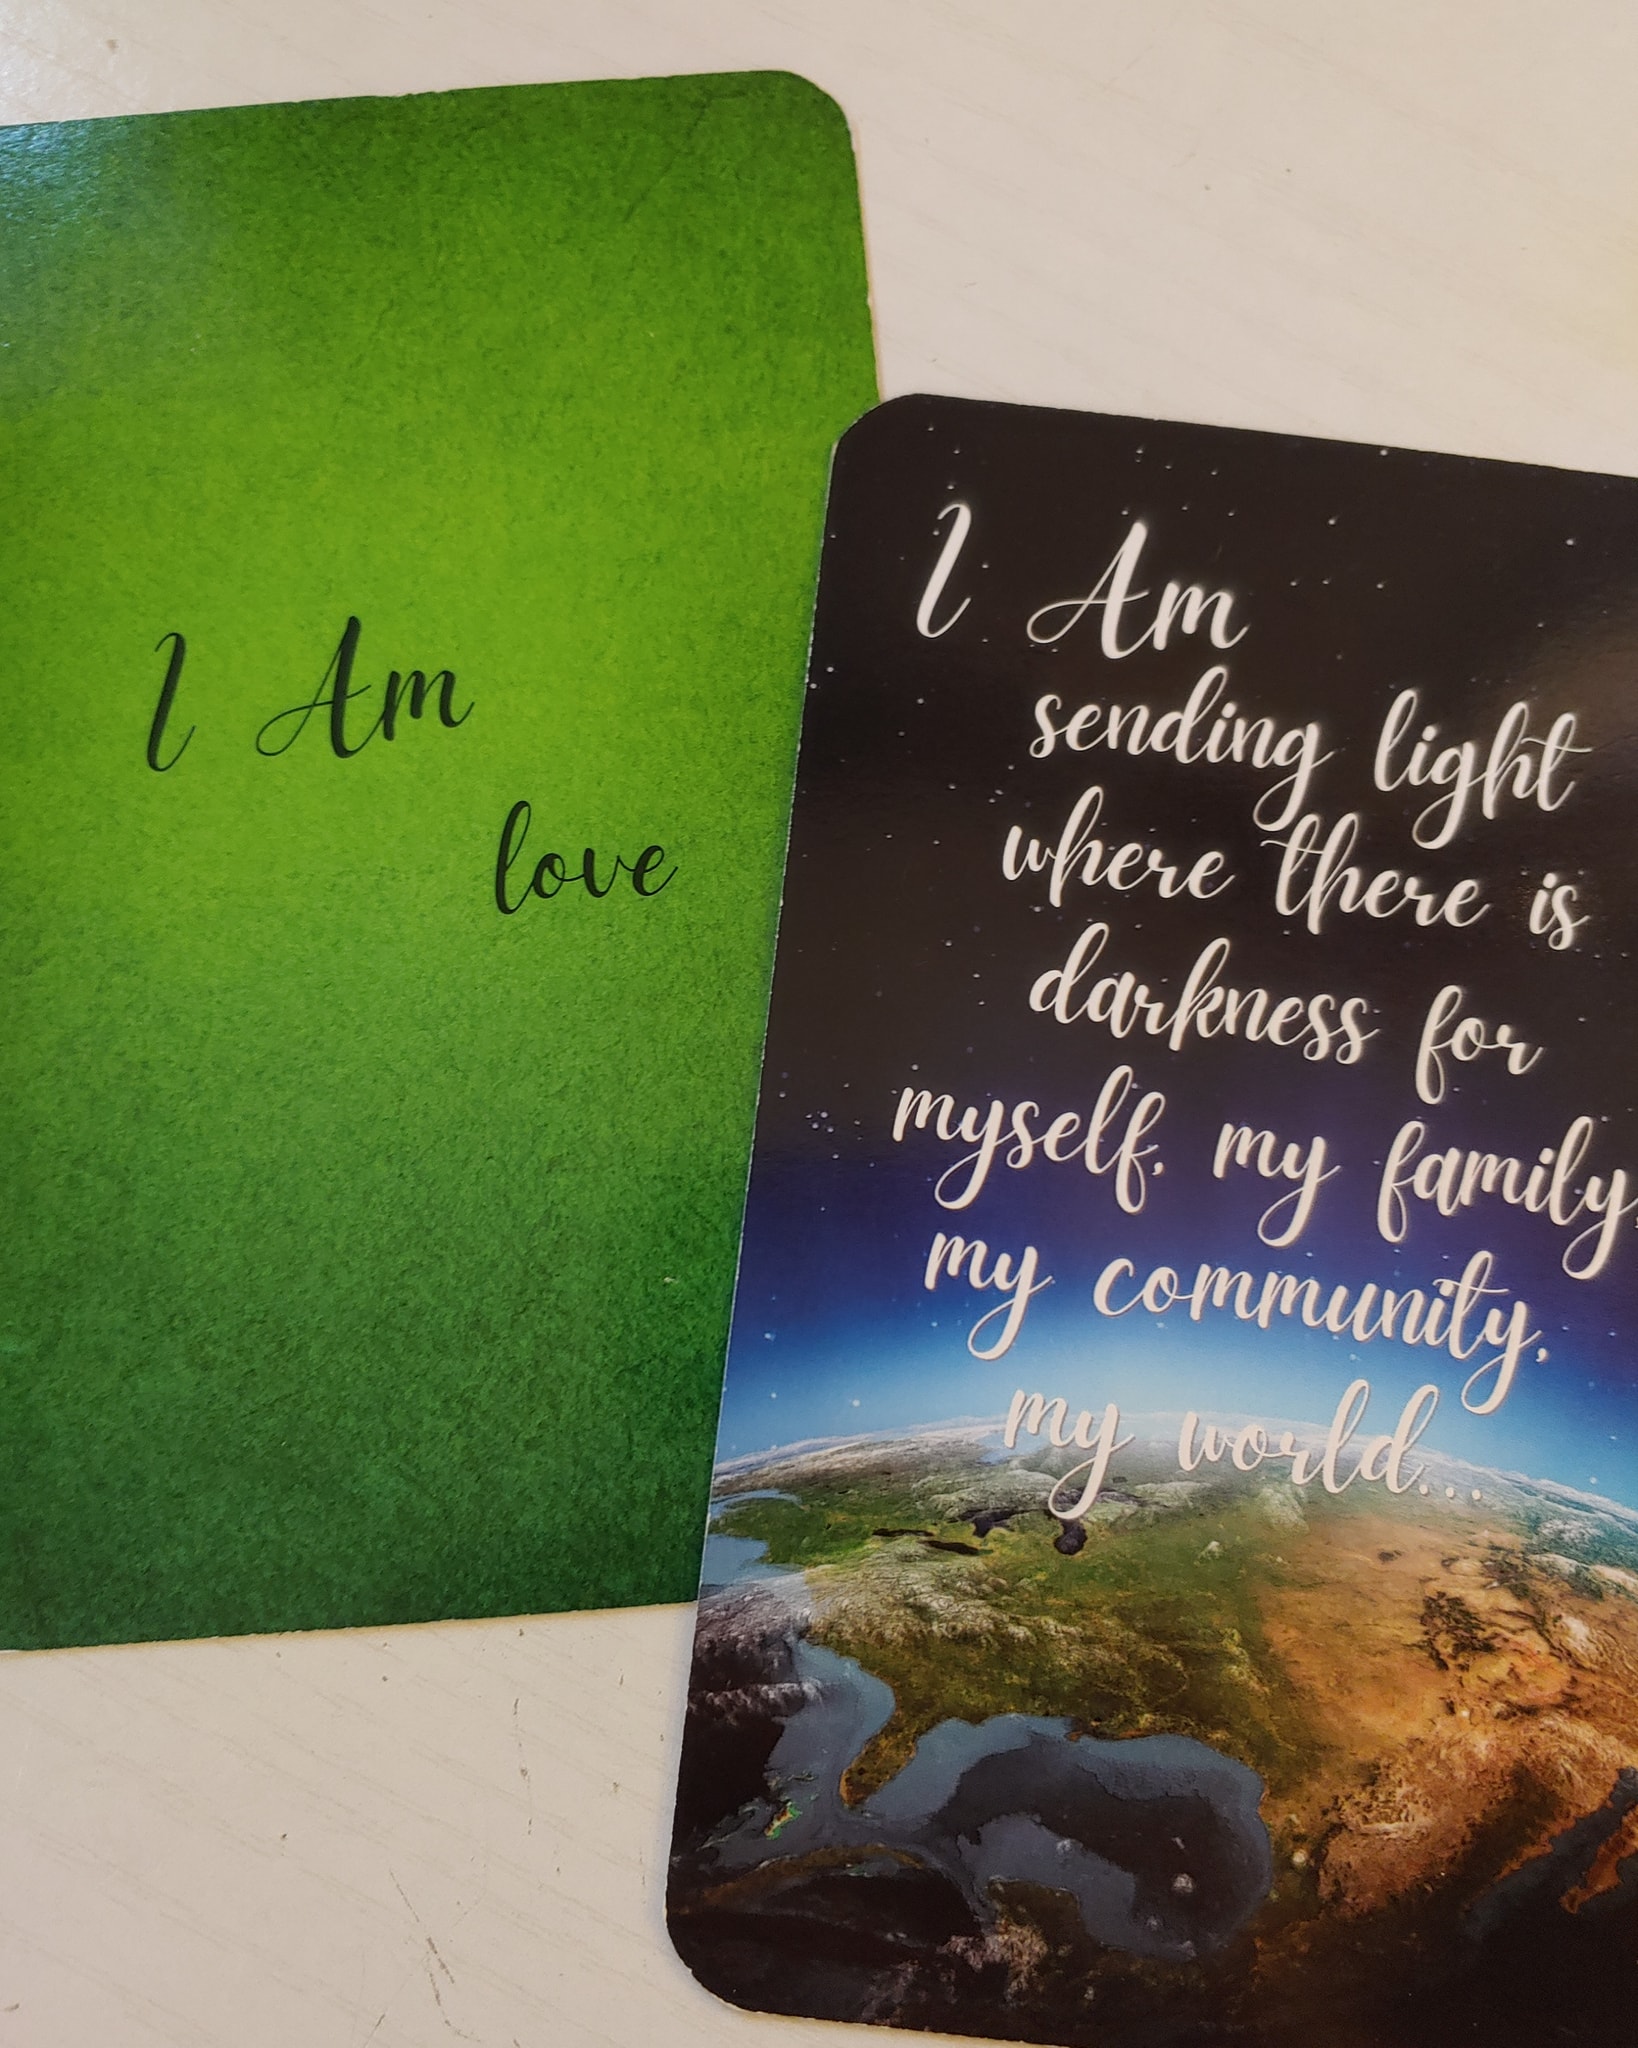 I Am
love
I Am
sending light
where there is
darkness for
myself, my family,
my community,
my world...